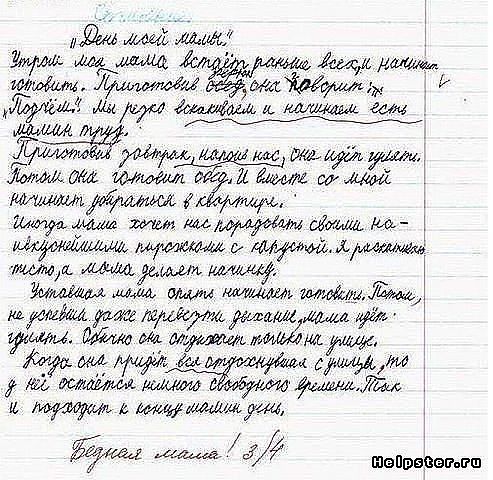 Сочинение.
„День моей мамы."
Утром моя мама встаёт раньше всех, и начинает
готовить. Приготовив завтрак, она говорит:
„Подъём". Мы резко вскакиваем и начинаем есть
мамин труд.
Приготовив завтрак, напоив нас, она идёт гулять.
Потом она готовит обед. И вместе со мной
начинает убираться в квартире.
Иногда мама хочет нас порадовать своими на-
ивкуснейшими пирожками с капустой. Я раскатываю
тесто, а мама делает начинку.
Уставшая мама опять начинает готовить. Потом,
не успевши даже перевезти дыхание, мама идёт
гулять. Обычно она отдыхает только на улице.
Когда она придёт вся отдохнувшая с улицы, то
у неё остаётся немного свободного времени. Так
и подходит к концу мамин день.
Бедная мама! 3/4
Helpster.ru